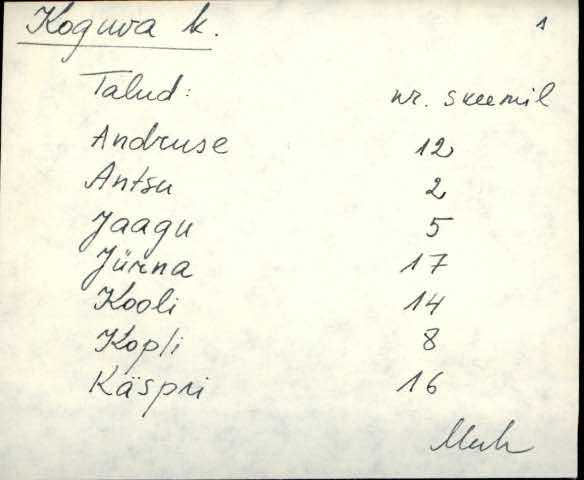 Koguva k. 1
Talud: nr. skeemil
Andruse 12
Antsu 2
Jaagu 5
Jürna 17
Kooli 14
Kopli 8
Käspri 16
Muh